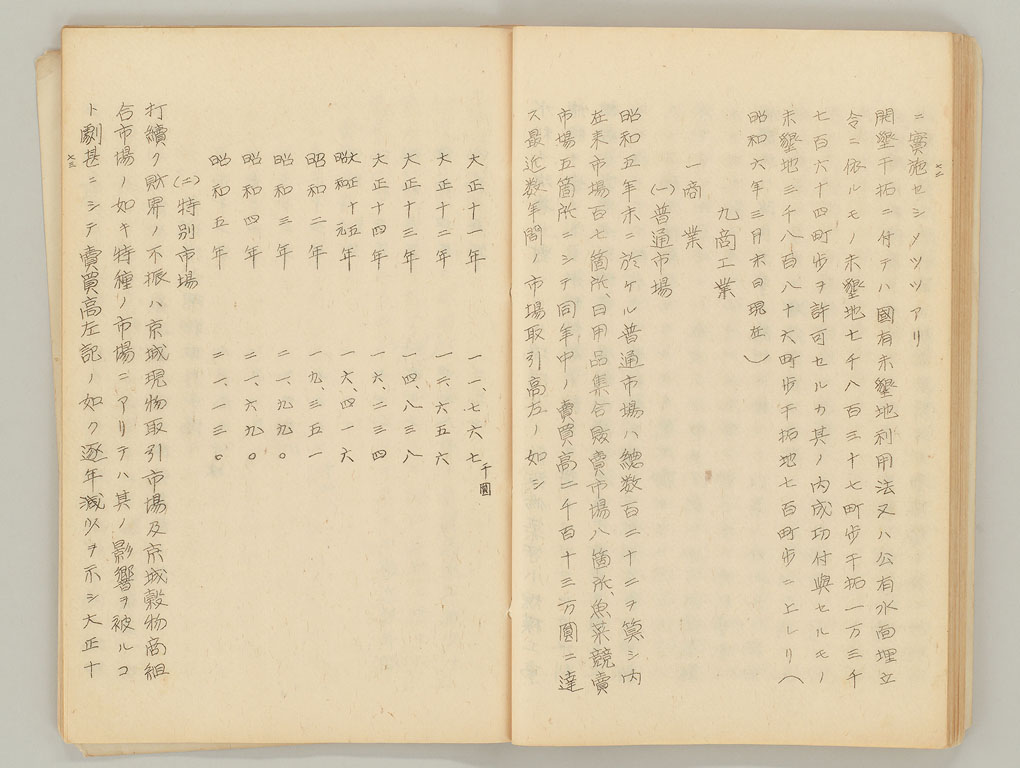 ニ實施セシメツツアリ
開墾干拓ニ付テハ國有未墾地利用法又ハ公有水面埋立
令ニ依ルモノ未墾地七千八百三十七町歩干拓一万三千
七百六十四町歩ヲ許可セルカ其ノ内成功付與セルモノ
未墾地三千八百八十六町歩干拓地七百町歩ニ上レリ（
昭和六年三月末日現在）
九商工業
一商業
(一)普通市場
昭和五年末ニ於ケル普通市場ハ總数百二十ニヲ算シ内
在来市場百七箇所、日用品集合販賣市場八箇所、魚菜競賣
市場五箇所ニシテ同年中ノ賣買高二千百十三万圓ニ達
ス最近数年間ノ市場取引高左ノ如シ
大正十一年 一一、七六七千圓
大正十二年 一三、六五六
大正十三年 一四、八三八
大正十四年 一六、二三四
大正十五年昭和元年 一六、四一六
昭和二年 一九、三五一
昭和三年 二一、九九〇
昭和四年 二一、六九〇
昭和五年 二一、一三〇
(二)特別市場
打續ク財界ノ不振ハ京城現物取引市場及京城穀物商組
合市場ノ如キ特種ノ市場ニアリテハ其ノ影響ヲ被ルコ
ト劇甚ニシテ賣買高左記ノ如ク逐年減少ヲ示シ大正十